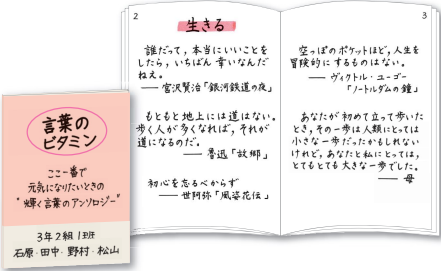 言葉の
ビタミン
ここ一番で
元気になりたいときの
“輝く言葉のアンソロジー”
3年2組1班
石原・田中・野村・松山
2
生きる
誰だって，本当にいいことを
したら，いちばん幸いなんだ
ねえ。
── 宮沢賢治「銀河鉄道の夜」
もともと地上には道はない。
歩く人が多くなれば，それが
道になるのだ。
── 魯迅「故郷」
初心を忘るべからず
── 世阿弥「風姿花伝」
3
空っぽのポケットほど，人生を
冒険的にするものはない。
── ヴィクトル・ユーゴー
「ノートルダムの鐘」
あなたが初めて立って歩いた
とき，その一歩は人類にとっては
小さな一歩だったかもしれない
けれど，あなたと私にとっては，
とてもとても大きな一歩でした。
── 母